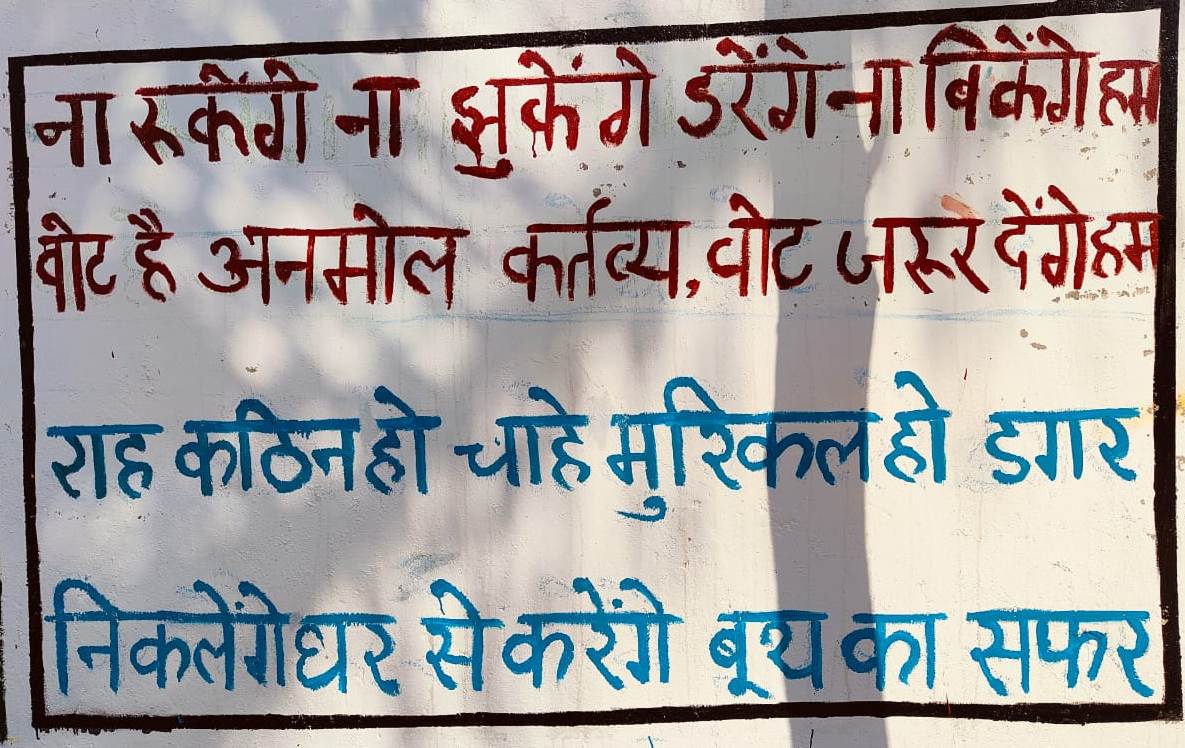 ना रूकेंगे ना झुकेंगे डरेंगे ना बिकेंगे हम
वोट है अनमोल कर्तव्य, वोट जरूर देंगे हम
राह कठिन हो चाहे मुश्किल हो डगर
निकलेंगे घर से करेंगे बूथ का सफर